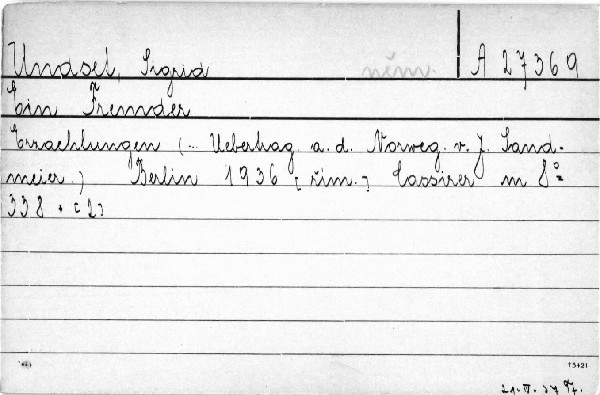 Undset, Sigrid něm. A 27369
Ein Fremder
Erzaehlungen (.. Uebertrag. a. d. Norweg. v. J. Sand-
meier.) Berlin 1936 [řím.] Cassirer m 8°
338 + [2]
T3421
21.IV.37